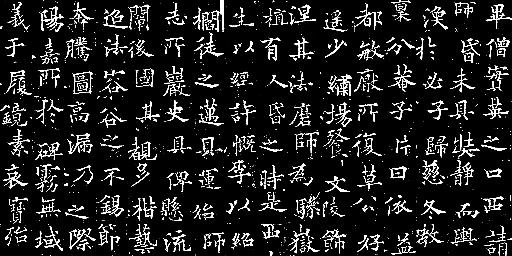 畢僧寶英之口西請
師昏未具裝靜而與
渙於必子歸慈冬教
稟分菴子片曰依益
都敏厥所復草公好
遥少繡場餐文陵飾
涅其法磨師為嶽
植百人昏之時是西
生以經許慨季以紹
徒之蓮具運始師
志所巖史具俾懸流
後國其覩多楷藝
追法容谷之不錫節
奔騰圖高漏乃之際
陽嘉所於碑霧無域
義于履鏡素哀寶殆